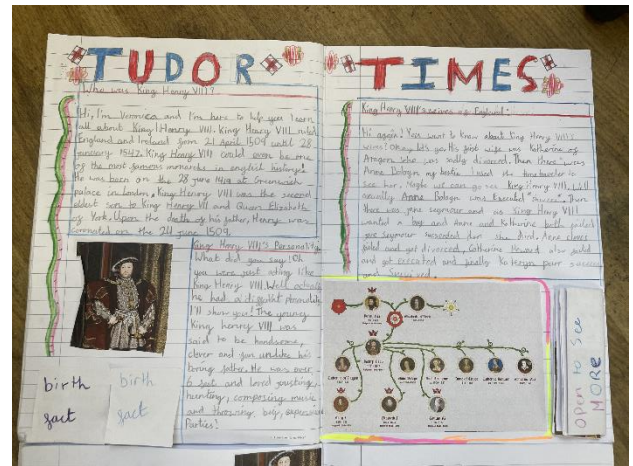 TUDOR TIMES
Who was King Henry VIII?
Hi, I'm Veronica and I'm here to help you learn
all about King Henry VIII. King Henry VIII ruled
England and Ireland from 21 April 1509 until 28
january 1547. King Henry VIII could even be one
of the most famous monarchs in english history.
He was born on the 28 june at Greenwich
palace in London. King Henry VIII was the second
eldest son to King Henry VII and Queen Elizabeth
of York. Upon the death of his father, Henry was
coronated on the 24 june 1509.
King Henry VIII's Personality
What did you say? Oh
you were just asking
King Henry VIII. Well
he had a
I'll show you! The young
King henry VIII was
said to be handsome,
clever and fun his
boring father. He was over
6 feet and loved jousting,
hunting, composing music
and throwing big, expensive
Parties!
birth
fact
birth
fact
King Henry VIII's of England
Hi again! You want to know about King Henry VIII's
wives! Okay let's go. His first wife was Katherine of
Aragon who was sadly divorced. Then there was
Anne my bestie. I used the time traveler to
see her. Maybe we can go see King Henry VIII.
Anne was Executed Then
there was jane seymour and as King Henry VIII
wanted a boy and Anne and Katherine both failed
jane Seymour but she died. Anne cleves
failed and got divorced, Catherine Howard also failed
and got executed and finally parr
and Survived.
Open to See
MORE